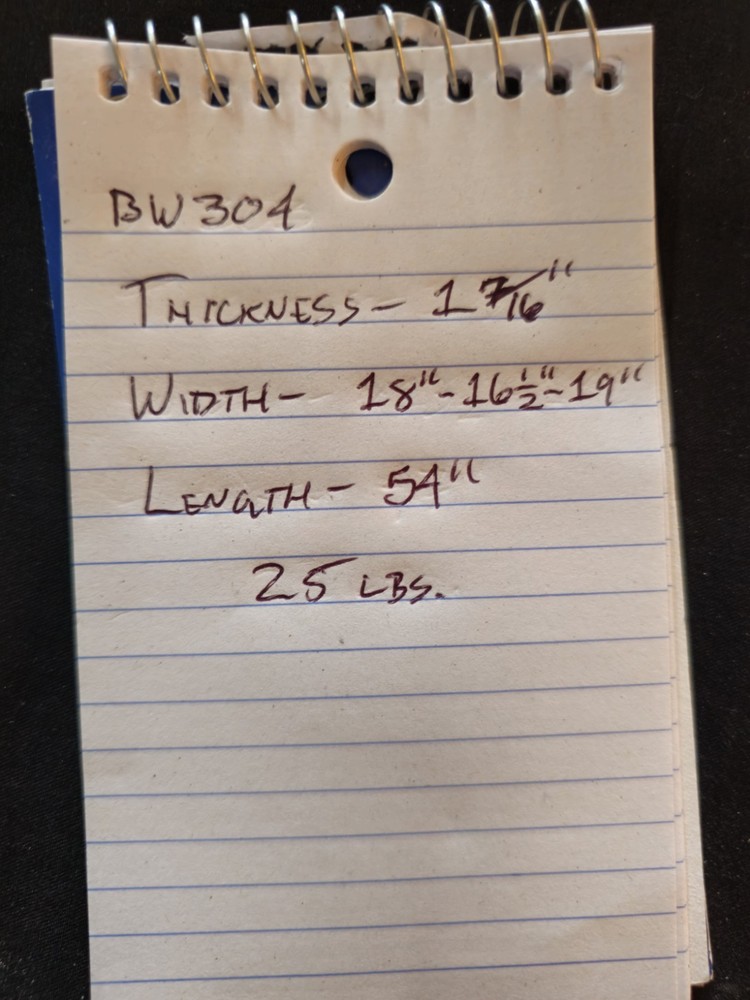 BW304
THICKNESS - 1 7/16"
WIDTH - 18" - 16 1/2" - 19"
LENGTH - 54"
25 LBS.